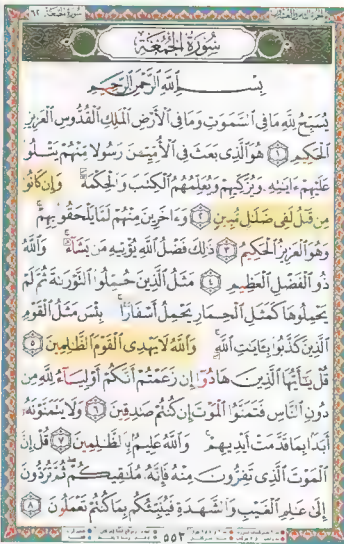 سُورَةُ الْجُمُعَةِ
بِسْمِ اللَّهِ الرَّحْمَٰنِ الرَّحِيمِ
يُسَبِّحُ لِلَّهِ مَا فِي السَّمَٰوَٰتِ وَمَا فِي الْأَرْضِ الْمَلِكِ الْقُدُّوسِ الْعَزِيزِ
الْحَكِيمِ ١ هُوَ الَّذِي بَعَثَ فِي الْأُمِّيِّينَ رَسُولًا مِنْهُمْ يَتْلُوا
عَلَيْهِمْ ءَايَٰتِهِ وَيُزَكِّيهِمْ وَيُعَلِّمُهُمُ الْكِتَٰبَ وَالْحِكْمَةَ وَإِن كَانُوا
مِن قَبْلُ لَفِي ضَلَٰلٍ مُّبِينٍ ٢ وَءَاخَرِينَ مِنْهُمْ لَمَّا يَلْحَقُوا بِهِمْ
وَهُوَ الْعَزِيزُ الْحَكِيمُ ٣ ذَٰلِكَ فَضْلُ اللَّهِ يُؤْتِيهِ مَن يَشَآءُ وَاللَّهُ
ذُو الْفَضْلِ الْعَظِيمِ ٤ مَثَلُ الَّذِينَ حُمِّلُوا التَّوْرَىٰةَ ثُمَّ لَمْ
يَحْمِلُوهَا كَمَثَلِ الْحِمَارِ يَحْمِلُ أَسْفَارًا بِئْسَ مَثَلُ الْقَوْمِ
الَّذِينَ كَذَّبُوا بِـَٔايَٰتِ اللَّهِ وَاللَّهُ لَا يَهْدِي الْقَوْمَ الظَّٰلِمِينَ ٥
قُلْ يَٰٓأَيُّهَا الَّذِينَ هَادُوٓا إِن زَعَمْتُمْ أَنَّكُمْ أَوْلِيَآءُ لِلَّهِ مِن
دُونِ النَّاسِ فَتَمَنَّوُا الْمَوْتَ إِن كُنتُمْ صَٰدِقِينَ ٦ وَلَا يَتَمَنَّوْنَهُ
أَبَدًا بِمَا قَدَّمَتْ أَيْدِيهِمْ وَاللَّهُ عَلِيمٌ بِالظَّٰلِمِينَ ٧ قُلْ إِنَّ
الْمَوْتَ الَّذِي تَفِرُّونَ مِنْهُ فَإِنَّهُ مُلَٰقِيكُمْ ثُمَّ تُرَدُّونَ
إِلَىٰ عَٰلِمِ الْغَيْبِ وَالشَّهَٰدَةِ فَيُنَبِّئُكُم بِمَا كُنتُمْ تَعْمَلُونَ ٨
٥٥٣